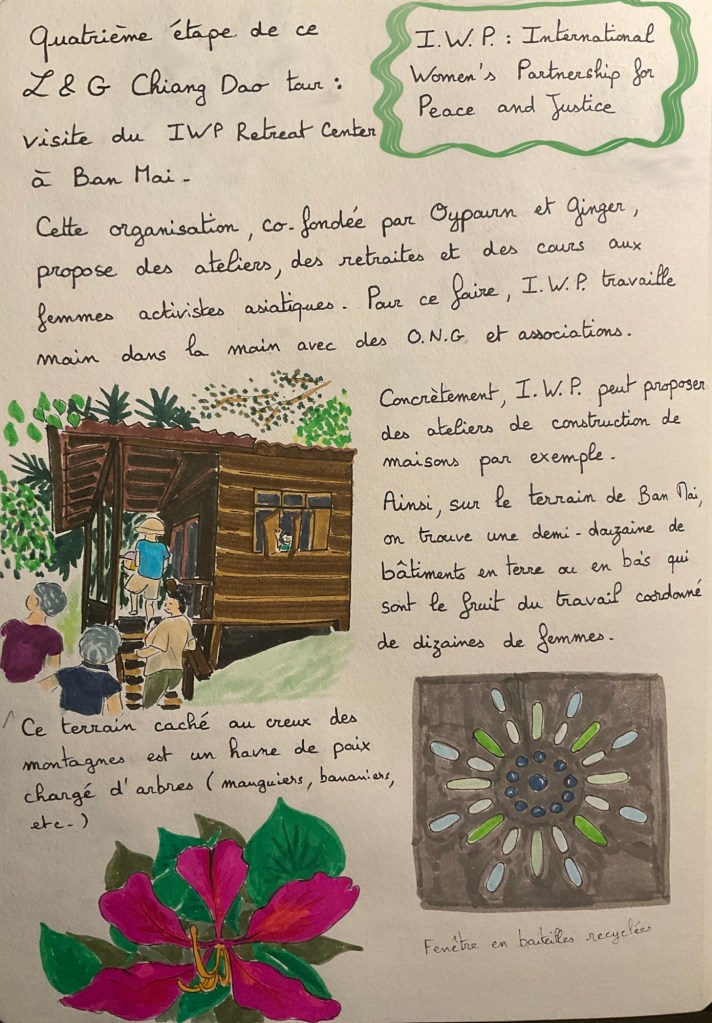 Quatrième étape de ce
L & G Chiang Dao tour :
visite du IWP Retreat Center
à Ban Mai.
I.W.P. : International
Women's Partnership for
Peace and Justice
Cette organisation, co-fondée par Oypaurn et Ginger,
propose des ateliers, des retraites et des cours aux
femmes activistes asiatiques. Pour ce faire, I.W.P. travaille
main dans la main avec des O.N.G et associations.
Concrètement, I.W.P. peut proposer
des ateliers de construction de
maisons par exemple.
Ainsi, sur le terrain de Ban Mai,
on trouve une demi-douzaine de
bâtiments en terre ou en bois qui
sont le fruit du travail coordonné
de dizaines de femmes.
Ce terrain caché au creux des
montagnes est un havre de paix
chargé d'arbres (manguiers, bananiers,
etc.)
Fenêtre en bouteilles recyclées